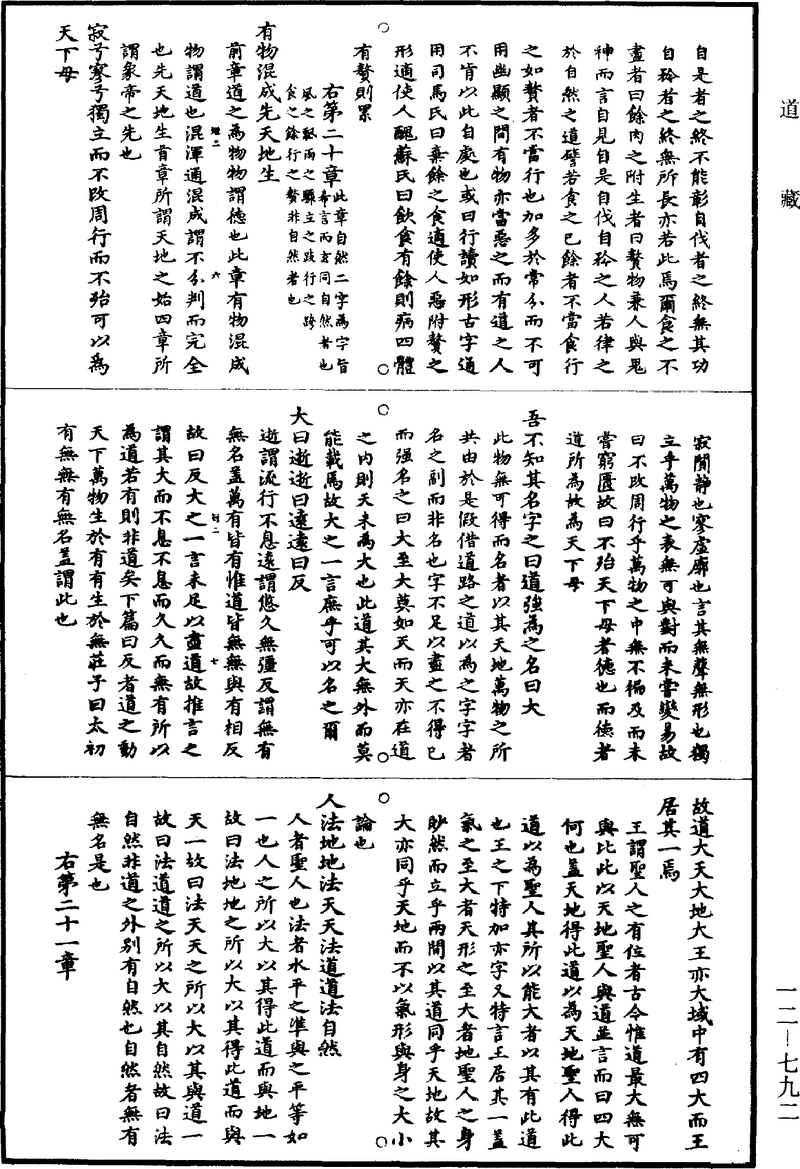 道藏
自是者之終不能彰自伐者之終無其功
自矜者之終無所長亦若此焉爾食之不
盡者曰餘肉之附生者曰贅物兼人與鬼
神而言自見自是自伐自矜之人若律之
於自然之道譬若食之已餘者不當食行
之如贅者不當行也加多於常分而不可
用幽顯之間有物亦當惡之而有道之人
不肯以此自處也或曰行讀如形古字通
用司馬氏曰棄餘之食適使人惡附贅之
形適使人醜蘇氏曰飲食有餘則病四體
有贅則累
右第二十章此章自然二字為字旨
希言而玄同自然者也
風之飄雨之驟立之跂行之跨
食之餘行之贅非自然者也
有物混成先天地生
前章道之為物物謂德也此章有物混成
物謂道也混渾通混成謂不分判而完全
也先天地生首章所謂天地之始四章所
謂象帝之先也
寂兮寥兮獨立而不改周行而不殆可以為
天下母
六
寂閴静也寥虛廓也言其無聲無形也獨
立乎萬物之表無可與對而未嘗變易故
曰不改周行乎萬物之中無不徧及而未
嘗窮匱故曰不殆天下母者德也而德者
道所為故為天下母
吾不知其名字之曰道強為之名曰大
此物無可得而名者以其天地萬物之所
共由於是假借道路之道以為之字字者
名之副而非名也字不足以盡之不得已
而强名之曰大至大莫如天而天亦在道
之内則天未為大也此道其大無外而莫
能載焉故大之一言庶乎可以名之爾
大曰逝逝曰遠遠曰反
逝謂流行不息遠謂悠久無彊反謂無有
無名盖萬有皆有惟道皆無無與有相反
故曰反大之一言未足以盡道故推言之
謂其大而不息不息而久久而無有所以
為道若有則非道矣下篇曰反者道之動
天下萬物生於有有生於無莊子曰太初
有無無有無名盖謂此也
七
故道大天大地大王亦大域中有四大而王
居其一焉
王謂聖人之有位者古今惟道最大無可
與比此以天地聖人與道並言而曰四大
何也盖天地得此道以為天地聖人得此
道以為聖人其所以能大者以其有此道
也王之下特加亦字又特言王居其一盖
氣之至大者天形之至大者地聖人之身
眇然而立乎兩間以其道同乎天地故其
大亦同乎天地而不以氣形與身之大小
論也
人法地地法天天法道道法自然
人者聖人也法者水平之準與之平等如
一也人之所以大以其得此道而與地一
故曰法地地之所以大以其得此道而與
天一故曰法天天之所以大以其與道一
故曰法道道之所以大以其自然故曰法
自然非道之外别有自然也自然者無有
無名是也
右第二十一章
一二—七九二